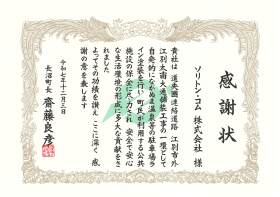 感謝状
ソリトン・コム 株式会社 様
貴社は 道央圏連絡道路 江別市外
江別太南大通舗装工事の一環として
自発的にながぬま温泉等の駐車場ラ
イン塗装を行い 町民が利用する公共
施設の保全に尽力され 安全で安心
な生活環境の形成に多大な貢献をさ
れました
よってその功績を讃え ここに深く感
謝の意を表します
令和七年十二月三日
長沼町長 齋藤良彦